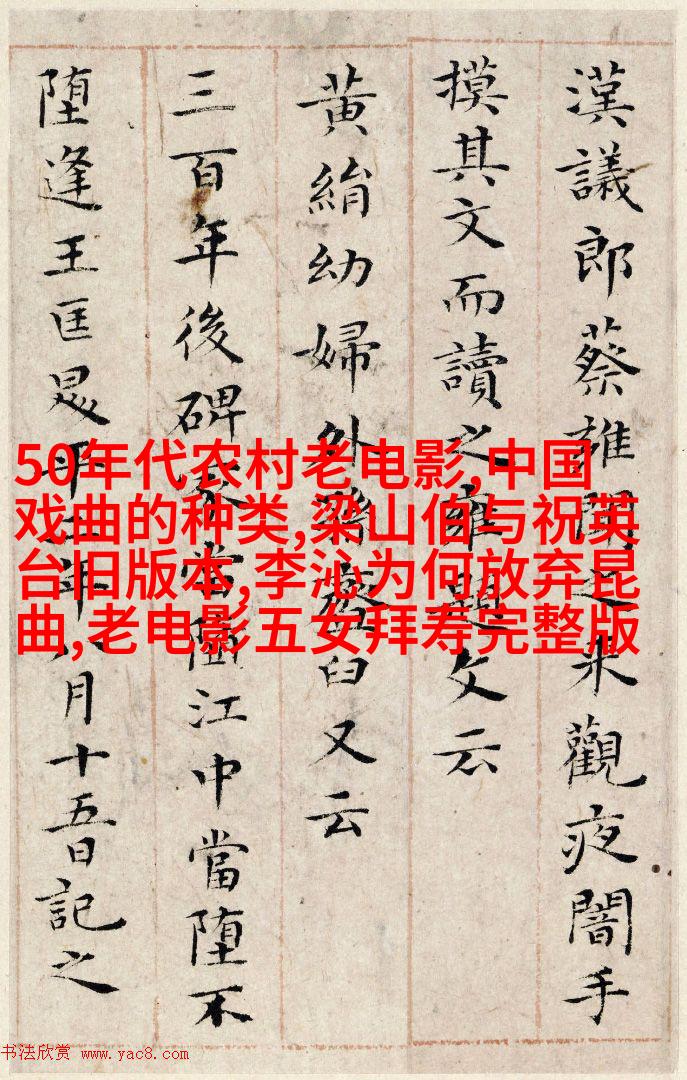 漢議郎蔡雍聞之来觀夜闇手
摸其文而讀之雍題文云
黄絹幼婦外孫臼又云
三百年後碑冢當堕江中當堕不
堕逢王匡昇平二年八月十五日記之
50年代农村老电影,中国
戏曲的种类,梁山伯与祝英
台旧版本,李沁为何放弃昆
曲,老电影五女拜寿完整版
书法欣赏 www.yac8.com